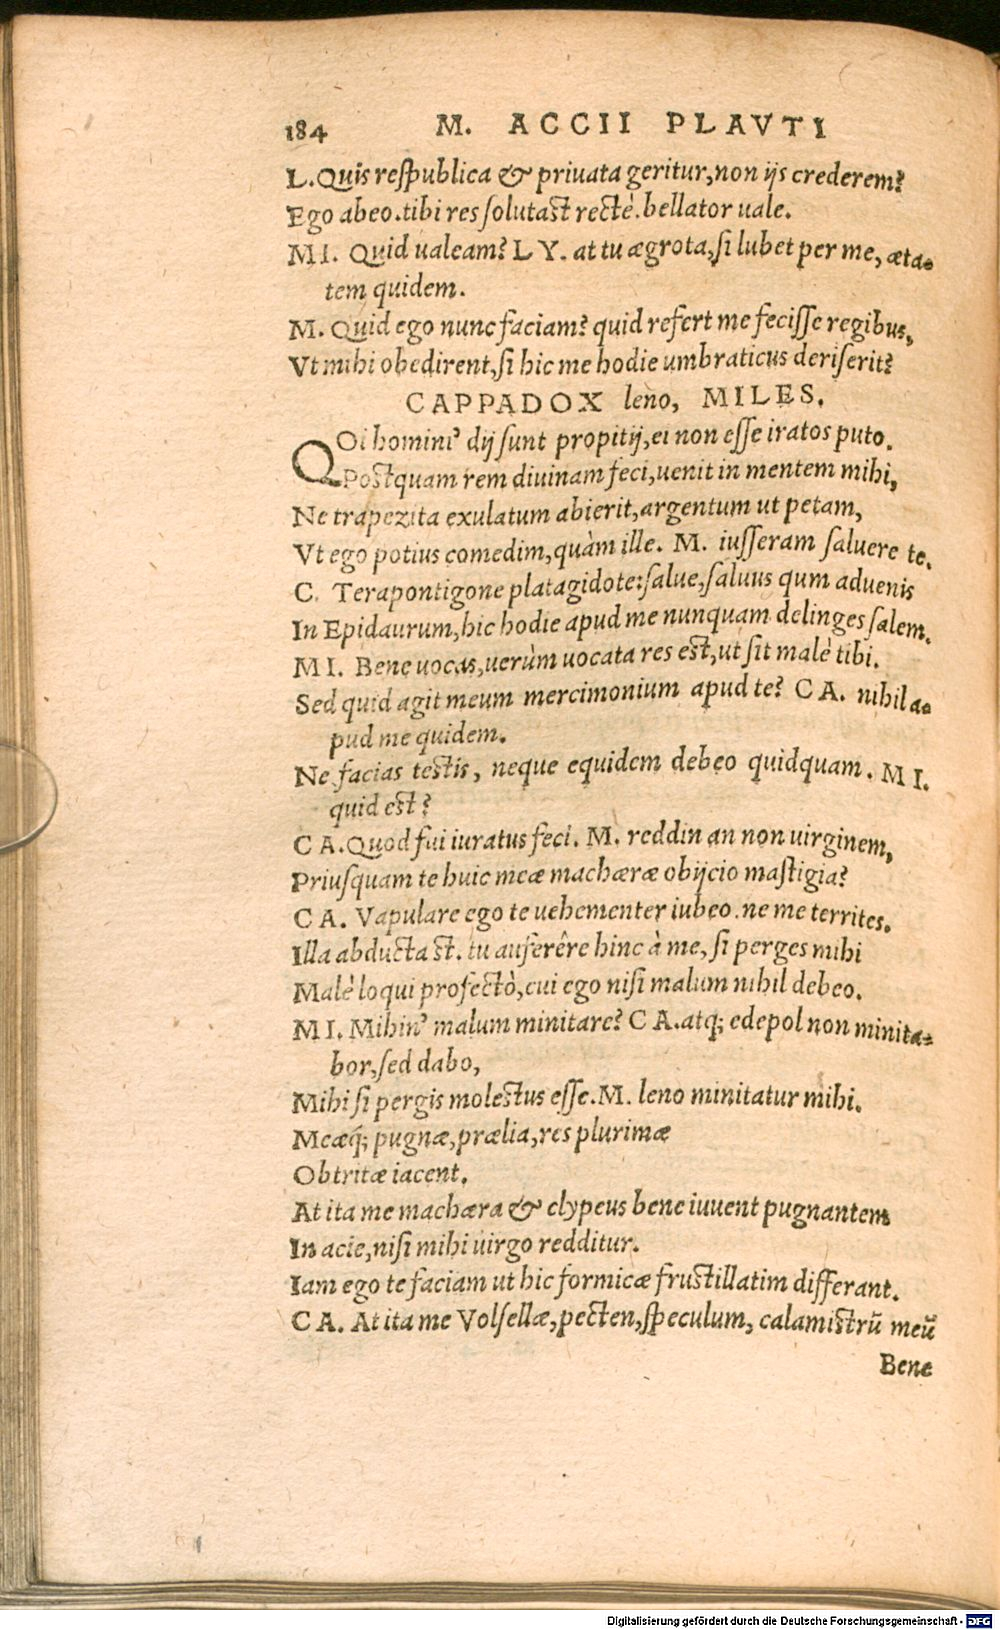 184 M. ACCII PLAVTI
L. Quîs respublica & priuata geritur, non ijs crederem?
Ego abeo. tibi res solutast rectè. bellator uale.
MI. Quid ualeam? LY. at tu ægrota, si lubet per me, æta-
tem quidem.
M. Quid ego nunc faciam? quid refert me fecisse regibus,
Vt mihi obedirent, si hic me hodie umbraticus deriserit?
CAPPADOX leno, MILES.
QOi homini' dij sunt propitij, ei non esse iratos puto.
Postquam rem diuinam feci, uenit in mentem mihi,
Ne trapezita exulatum abierit, argentum ut petam,
Vt ego potius comedim, quàm ille. M. iusseram saluere te.
C. Terapontigone platagidote: salue, saluus qum aduenis
In Epidaurum, hic hodie apud me nunquam delinges salem.
MI. Bene uocas, uerùm uocata res est, ut sit malè tibi.
Sed quid agit meum mercimonium apud te? CA. nihil a-
pud me quidem.
Ne facias testis, neque equidem debeo quidquam. MI.
quid est?
CA. Quod fui iuratus feci. M. reddin an non uirginem,
Priusquam te huic meæ machæræ obijcio mastigia?
CA. Vapulare ego te uehementer iubeo. ne me territes.
Illa abductast. tu auferêre hinc à me, si perges mihi
Malè loqui profectò, cui ego nisi malum nihil debeo.
MI. Mihin' malum minitare? CA. atq; edepol non minita-
bor, sed dabo,
Mihi si pergis molestus esse. M. leno minitatur mihi.
Meæq́; pugnæ, prælia, res plurimæ
Obtritæ iacent.
At ita me machæra & clypeus bene iuuent pugnantem
In acie, nisi mihi uirgo redditur.
Iam ego te faciam ut hic formicæ frustillatim differant.
CA. At ita me Volsellæ, pecten, speculum, calamistrũ meũ
Bene
Digitalisierung gefördert durch die Deutsche Forschungsgemeinschaft - DFG